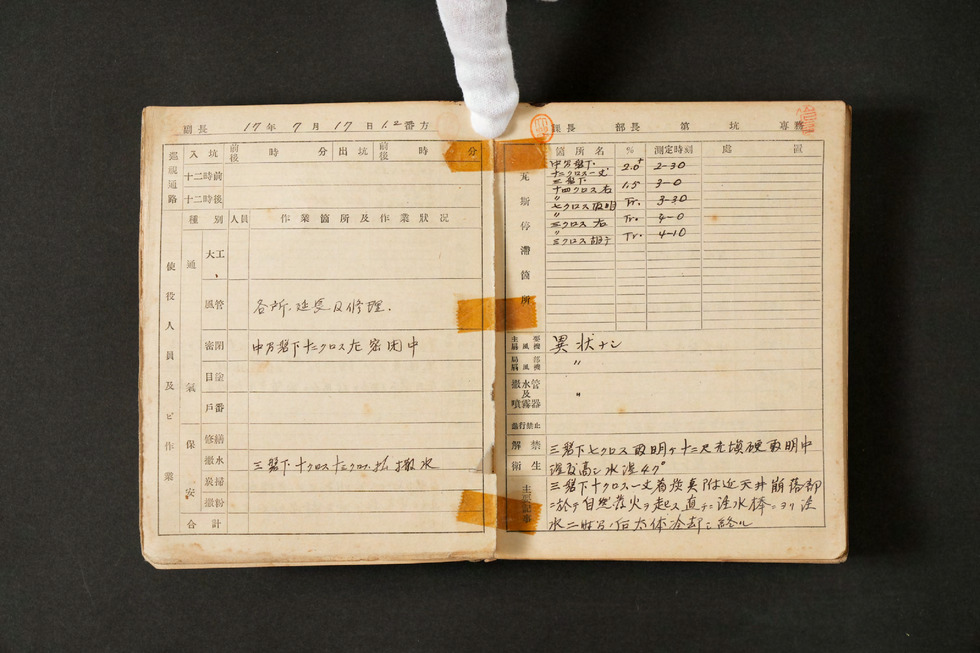 副長 17年7月17日1.2番方
巡視通路
入坑 前後 時 分 出坑 前後 時 分
十二時前
十二時後
使役人員及ビ作業
種別 人員 作業箇所及作業狀況
通氣
大工
風管 各所延長及修理.
密閉 中万磐下十二クロス左密閉中
目塗
戶番
保安
修繕
撒水 三磐下十クロス十二クロス払撒水
炭掃
撒粉
合計
課長 部長 第 坑 專務
瓦斯停滯箇所
箇所名 % 測定時刻 處置
中万磐下
十二クロス一丈 2.0+ 2-30
三磐下
十四クロス右 1.5 3-0
〃
七クロス取明 Tr. 3-30
〃
三クロス右 Tr. 4-0
〃
三クロス Tr. 4-10
主要扇風機 異狀ナシ
局部扇風機 〃
撒水管及噴霧器 〃
禁止
解禁 三磐下七クロス取明ケ十二尺充填硬取明中
衛生 温度高シ水温47°
主要記事 三磐下十クロス一丈 附近天井崩落部
ニ於テ自然発火ヲ起ス直チニ注水棒ニヨリ注
水 大体冷却シ終ル